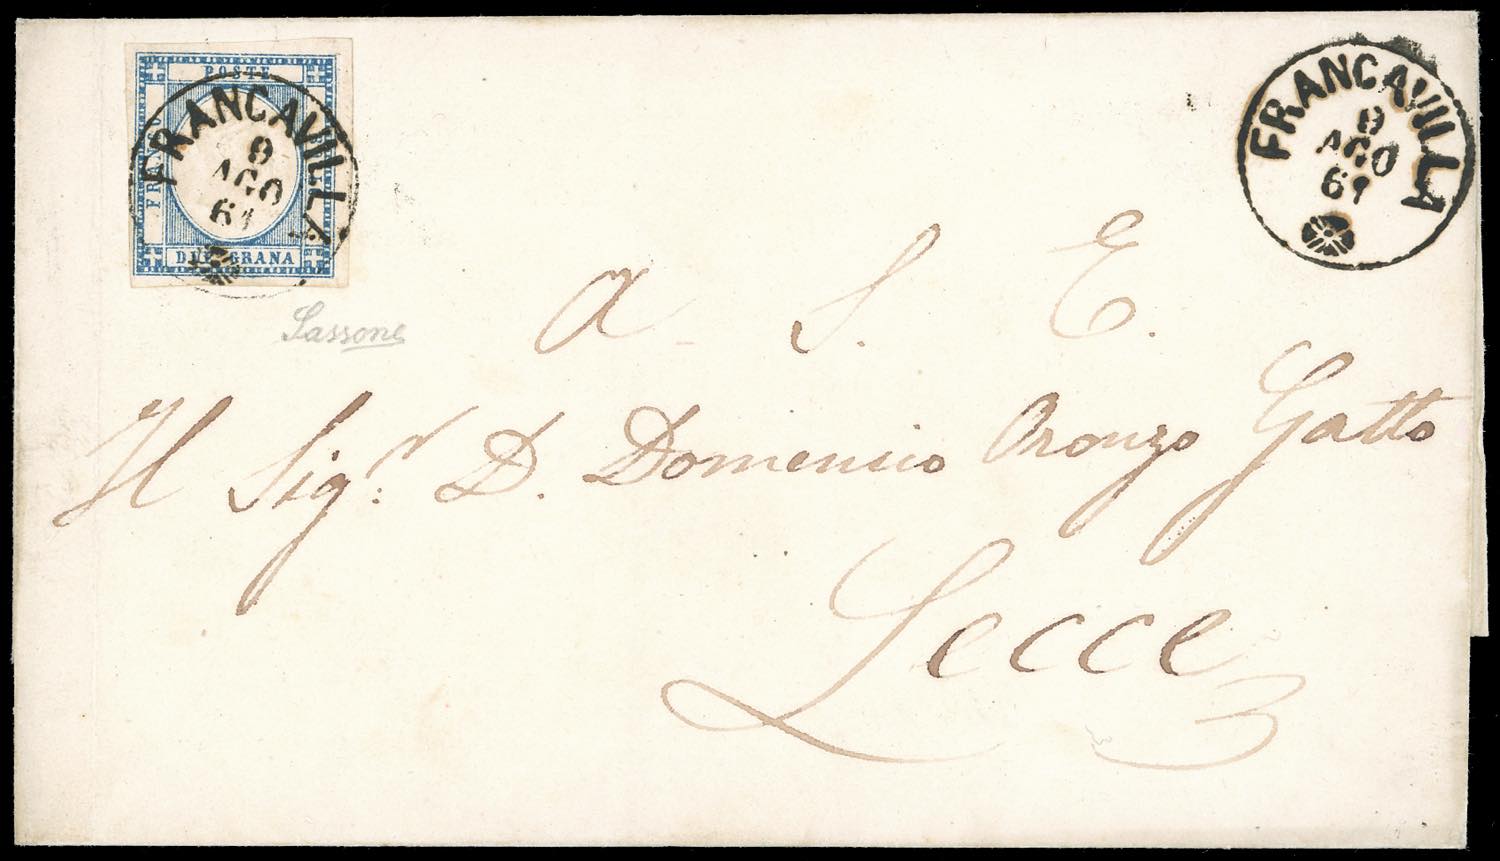 POSTE
FRANCO
DUE GRANA
FRANCAVILLA
9
AGO
61
FRANCAVILLA
9
AGO
61
Sassone
A S. E.
Il Sigr. D. Domenico Oronzo Gatto
Lecce